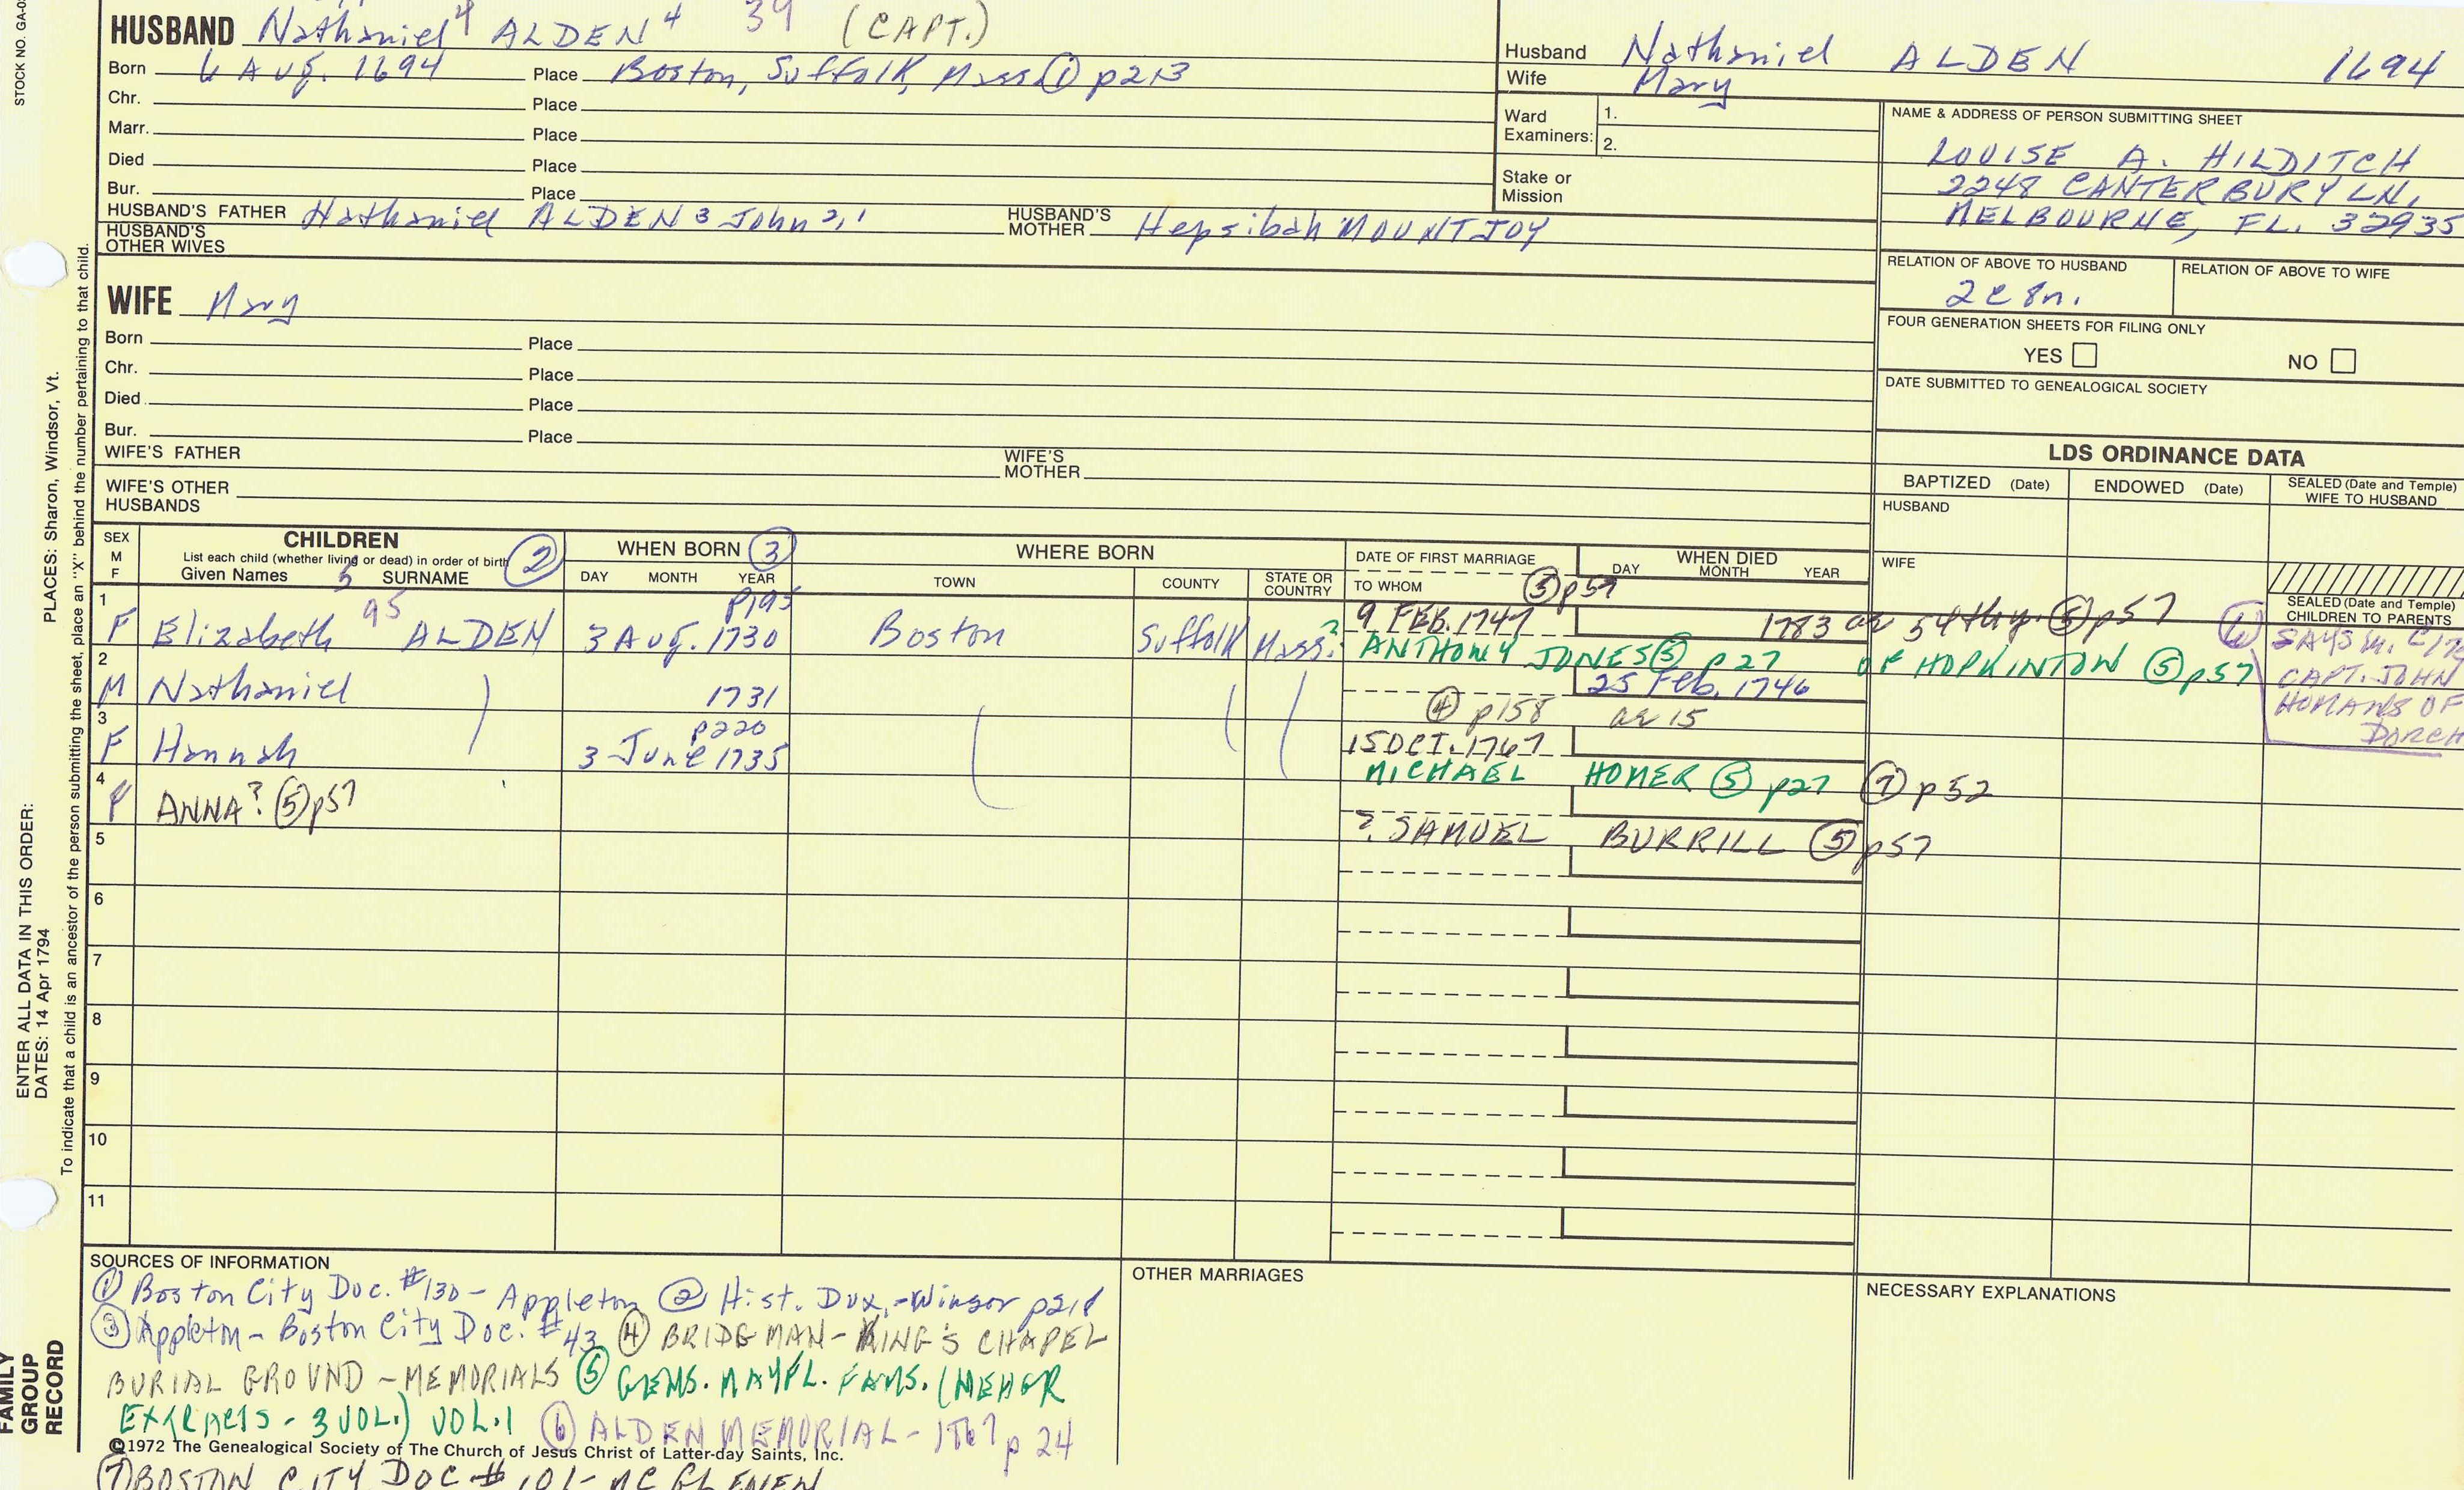 STOCK NO. GA-0
HUSBAND Nathaniel 4 ALDEN 4 39 (CAPT.)
Born 6 Aug. 1694 Place Boston, Suffolk, Mass ① p213
Chr. Place
Marr. Place
Died Place
Bur. Place
HUSBAND'S FATHER Nathaniel ALDEN 3 John 2, 1 HUSBAND'S MOTHER Hepsibah MOUNTJOY
HUSBAND'S OTHER WIVES
Husband Nathaniel ALDEN 1694
Wife Mary
Ward Examiners: 1.
2.
Stake or Mission
NAME & ADDRESS OF PERSON SUBMITTING SHEET
LOUISE A. HILDITCH
2248 CANTERBURY LN,
MELBOURNE, FL. 32935
RELATION OF ABOVE TO HUSBAND RELATION OF ABOVE TO WIFE
2c8n.
FOUR GENERATION SHEETS FOR FILING ONLY
YES NO
DATE SUBMITTED TO GENEALOGICAL SOCIETY
WIFE Mary
Born Place
Chr. Place
Died Place
Bur. Place
WIFE'S FATHER WIFE'S MOTHER
WIFE'S OTHER HUSBANDS
LDS ORDINANCE DATA
BAPTIZED (Date) ENDOWED (Date) SEALED (Date and Temple) WIFE TO HUSBAND
HUSBAND
WIFE
SEALED (Date and Temple) CHILDREN TO PARENTS
SEX M F
CHILDREN ②
List each child (whether living or dead) in order of birth
Given Names 5 SURNAME
WHEN BORN ③
DAY MONTH YEAR
WHERE BORN
TOWN COUNTY STATE OR COUNTRY
DATE OF FIRST MARRIAGE
TO WHOM
WHEN DIED
DAY MONTH YEAR
⑤ p57
1 F Elizabeth 95 ALDEN p195 3 Aug. 1730 Boston Suffolk Mass? 9 FEB. 1747 1783 ae 54thy. ⑤ p57
ANTHONY JONES ⑤ p27 OF HOPKINTON ⑤ p57
⑥ SAYS M. C17
CAPT. JOHN
HOMANS OF
DORCH
2 M Nathaniel 1731 25 Feb. 1746
④ p158 ae 15
3 F Hannah p220 3 June 1735 15 OCT. 1767
MICHAEL HOMER ⑤ p27 ⑦ p52
4 F ANNA? ⑤ p57
? SAMUEL BURRILL ⑤ p57
5
6
7
8
9
10
11
SOURCES OF INFORMATION
① Boston City Doc. #130 - Appleton ② Hist. Dux. - Winsor p218
③ Appleton - Boston City Doc. #43 ④ BRIDGMAN - KING'S CHAPEL
BURIAL GROUND - MEMORIALS ⑤ GENS. MAYFL. FAMS. (NEHGR
EXTRACTS - 3 VOL.) VOL. 1 ⑥ ALDEN MEMORIAL - 1867 p 24
©1972 The Genealogical Society of The Church of Jesus Christ of Latter-day Saints, Inc.
⑦ BOSTON CITY DOC # 101 - MC GLENEN
OTHER MARRIAGES
NECESSARY EXPLANATIONS
ENTER ALL DATA IN THIS ORDER:
DATES: 14 Apr 1794
PLACES: Sharon, Windsor, Vt.
To indicate that a child is an ancestor of the person submitting the sheet, place an "X" behind the number pertaining to that child.
FAMILY
GROUP
RECORD